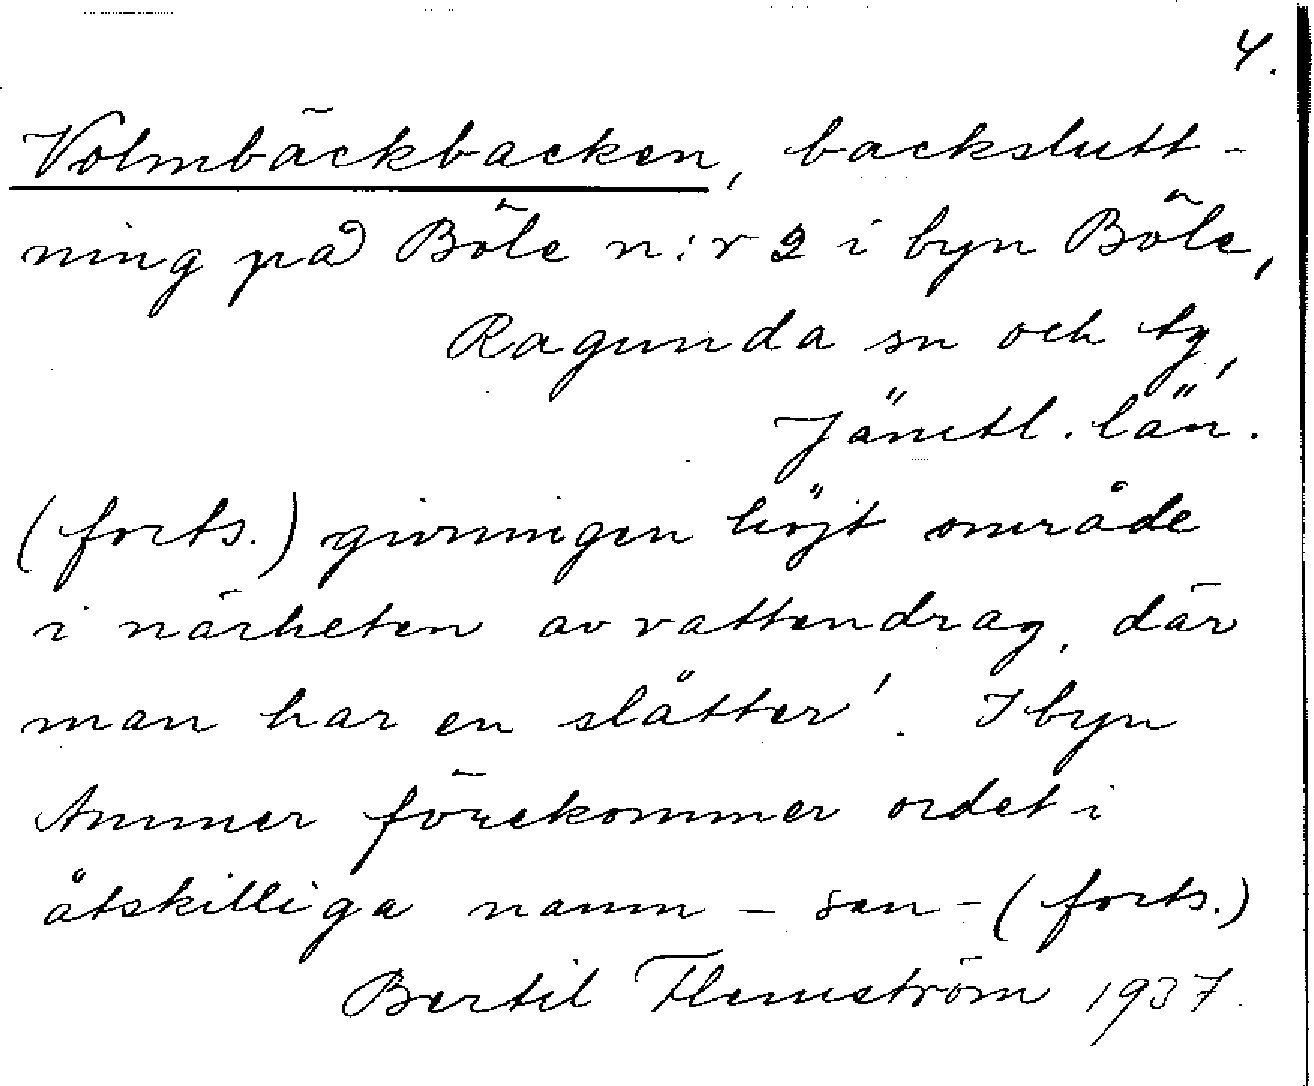 4.
Volmbäckbacken, backslutt-
ning på Böle n:r 2 i byn Böle,
Ragunda sn och tg,
Jämtl. län.
(forts.) givningen höjt område
i närheten av vattendrag, där
man har en slåtter'. I byn
Ammer förekommer ordet i
åtskilliga namn – sen – (forts.)
Bertil Flemström 1937.